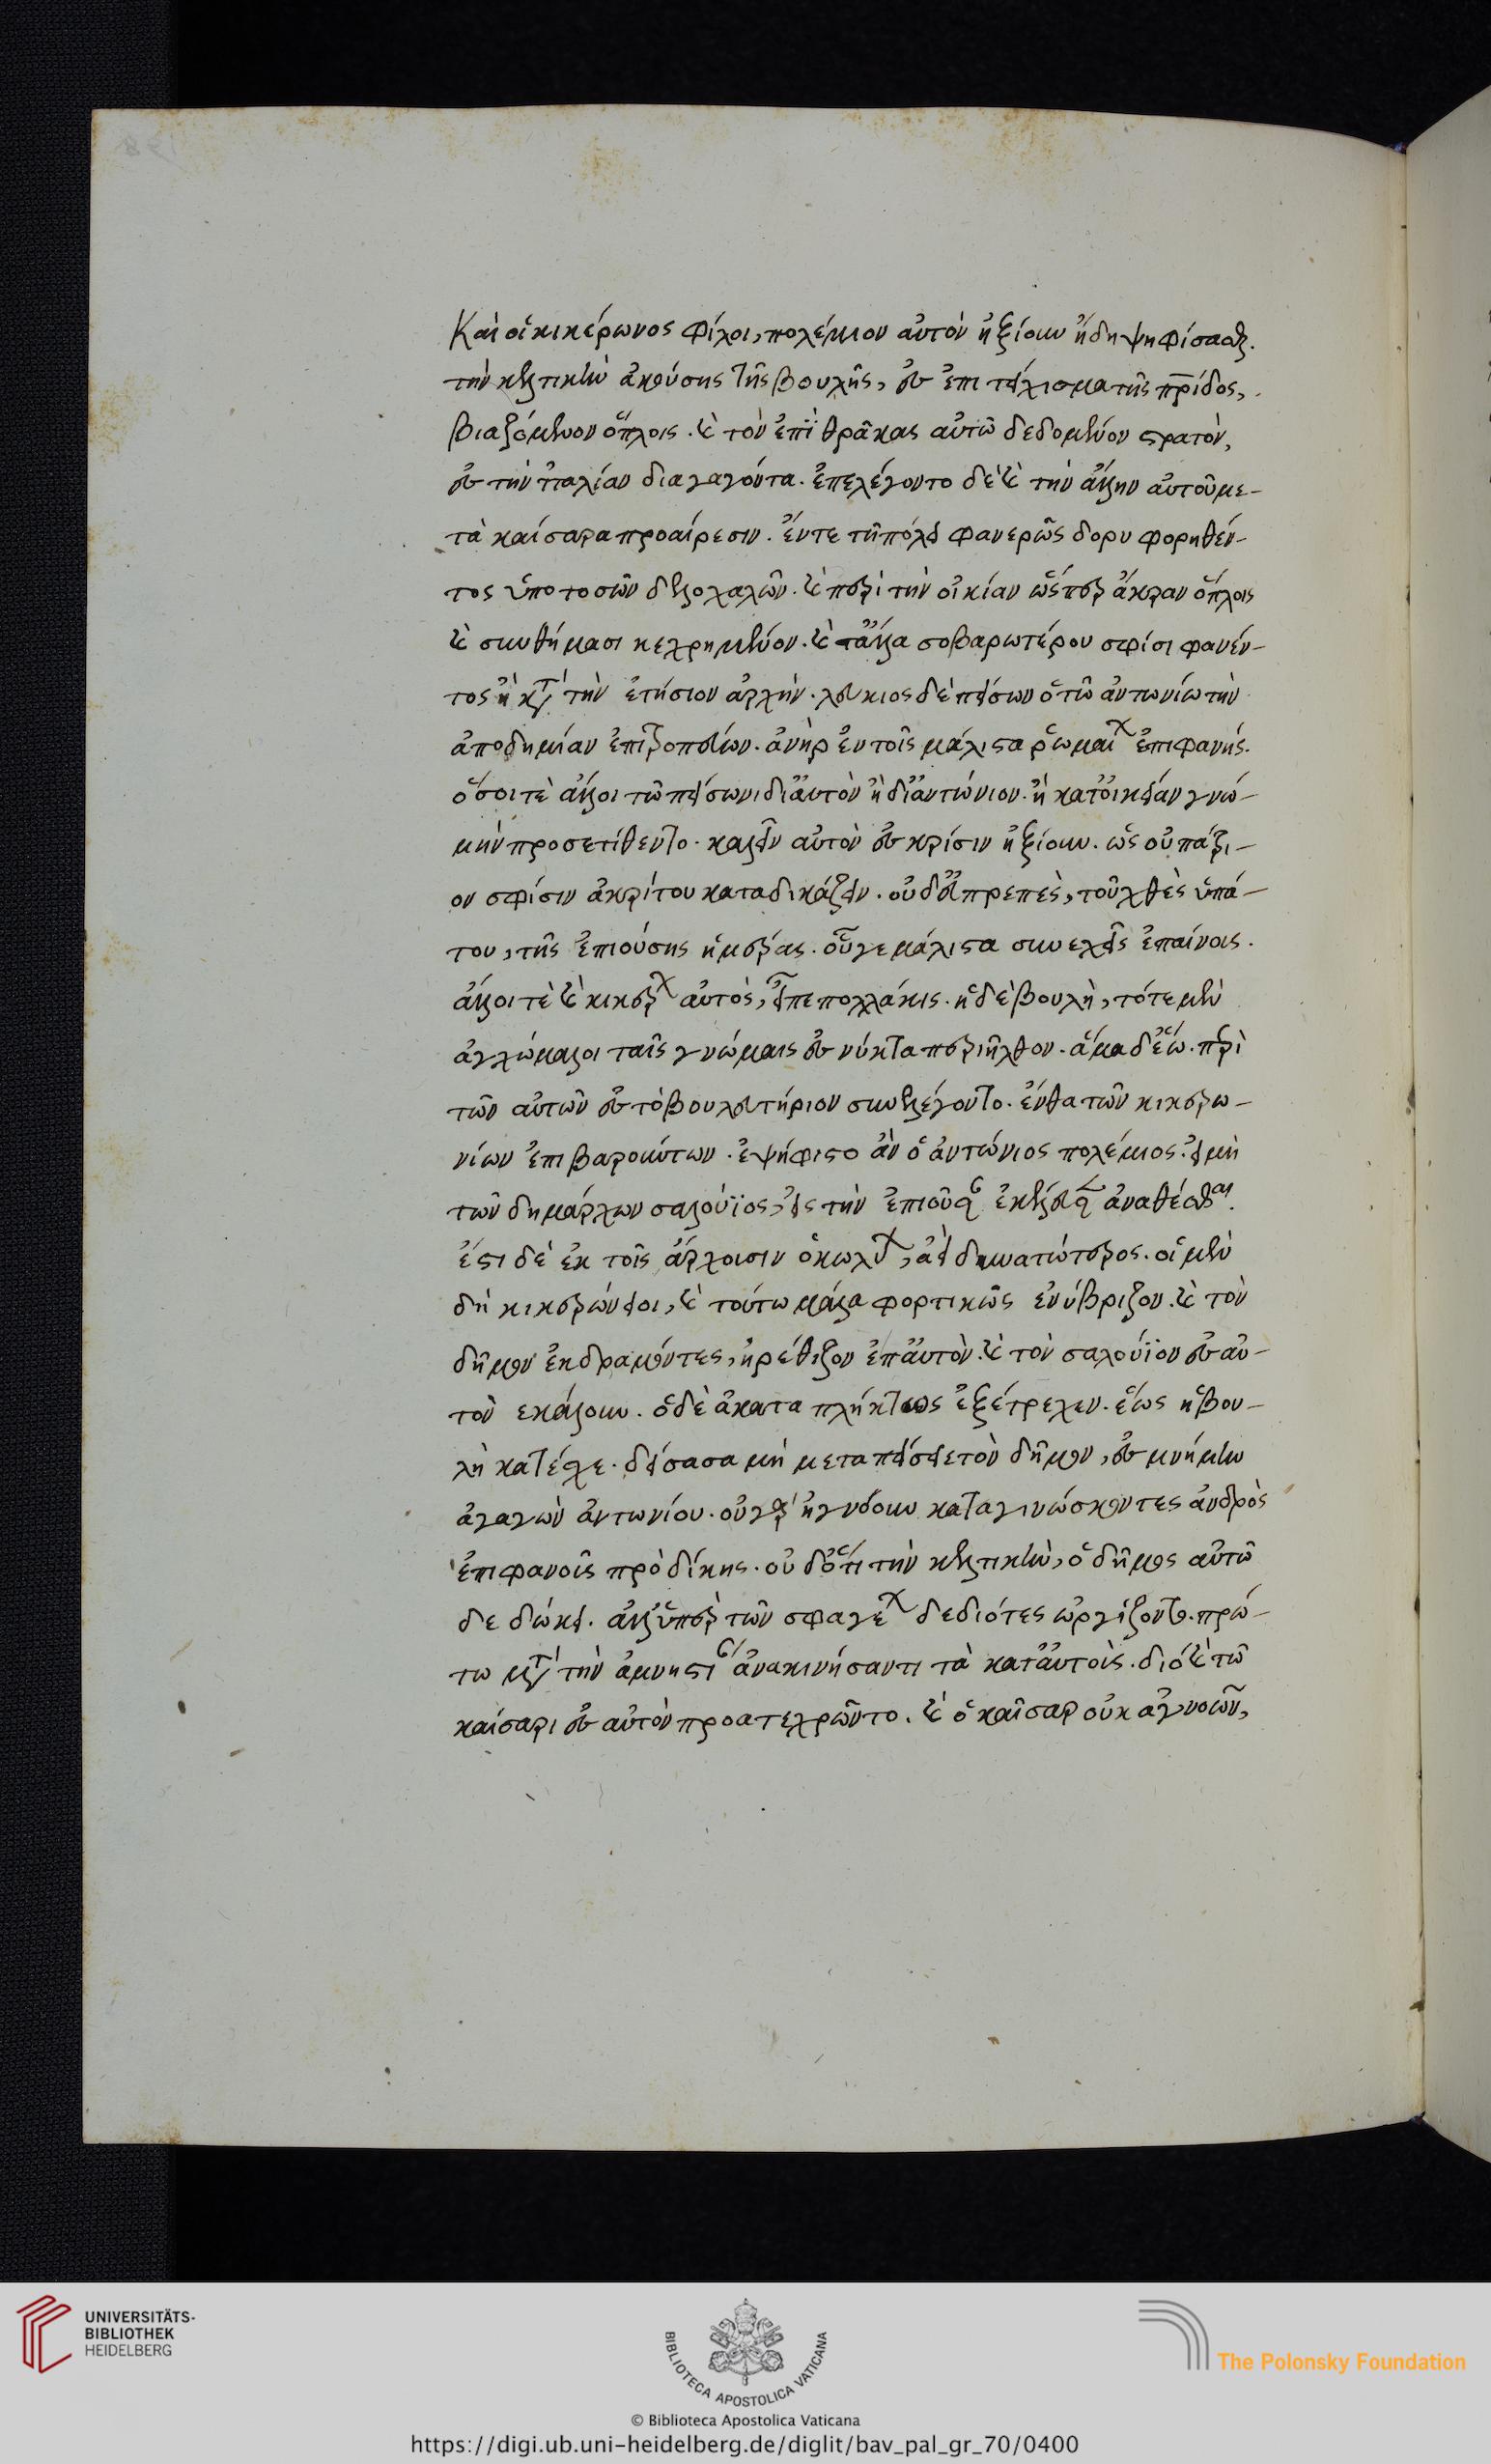 Καὶ οἱ κικέρωνος φίλοι, πολέμιον αὐτὸν ἠξίουν ἤδη ψηφίσασθαι.
τὴν κελτικὴν ἀκούσης τῆς βουλῆς, ἐν ἐπιτείχισμα τῆς πρίδος,
βιαζόμενον ὅπλοις. καὶ τὸν ἐπὶ θρᾶκας αὐτῶ δεδομένον στρατὸν,
ἐν τὴν ἰταλίαν διαγαγόντα. ἐπελέγοντο δὲ καὶ τὴν ἄλλην αὐτοῦ με-
τὰ καίσαρα προαίρεσιν. ἔν τε τῆ πόλει φανερῶς δορυφορηθέν-
τος ὑπὸ τοσῶνδε λοχαγῶν. καὶ περὶ τὴν οἰκίαν ὥσπερ ἄκραν ὅπλοις
καὶ συνθήμασι κεχρημένον. καὶ τἄλλα σοβαρωτέρου σφίσι φανέν-
τος ἢ κατὰ τὴν ἐτήσιον ἀρχήν. λεύκιος δὲ πείσων ὁ τῶ ἀντωνίω τὴν
ἀποδημίαν ἐπιτροπεύων. ἀνὴρ ἐν τοῖς μάλιστα ῥωμαί ἐπιφανής.
ὅσοι τὲ ἄλλοι τῶ πείσωνι δι' αὐτὸν ἢ δι' ἀντώνιον. ἢ κατ' οἰκείαν γνώ-
μην προσετίθεντο. καλεῖν αὐτὸν ἐν κρίσιν ἠξίουν. ὡς οὐ πάτρι-
ον σφίσιν ἀκρίτου καταδικάζειν. οὐδ' εὐπρεπὲς, τοῦ χθὲς ὑπά-
του, τῆς ἐπιούσης ἡμέρας. οὗ γε μάλιστα συνεχεῖς ἐπαίνοις.
ἄλλοι τὲ καὶ κικέρ αὐτὸς, εἶπε πολλάκις. ἡ δὲ βουλὴ, τότε μὲν
ἀγχώμαλοι ταῖς γνώμαις ἐν νύκτα περιῆλθον. ἅμα δ' ἕω. περὶ
τῶν αὐτῶν ἐν τὸ βουλευτήριον συνελέγοντο. ἔνθα τῶν κικερω-
νίων ἐπιβαρούντων. ἐψήφιστο ἂν ὁ ἀντώνιος πολέμιος. εἰ μὴ
τῶν δημάρχων σαλούϊος, εἰς τὴν ἐπιοῦσαν ἐκέλευσεν ἀναθέσθαι.
ἔστι δὲ ἐκ τοῖς ἄρχουσιν ὁ κωλύ, ἀεὶ δυνατώτερος. οἱ μὲν
δὴ κικερώνειοι, καὶ τούτω μάλα φορτικῶς ἐνύβριζον. καὶ τὸν
δῆμον ἐκδραμόντες, ἠρέθιζον ἐπ' αὐτὸν. καὶ τὸν σαλούϊον ἐν αὐ-
τὸν εκάλουν. ὁ δὲ ἀκαταπλήκτως ἐξέτρεχεν. ἕως ἡ βου-
λὴ κατέσχε. δείσασα μὴ μεταπείσειε τὸν δῆμον, ἐν μνήμην
ἀγαγὼν ἀντωνίου. οὐ γὰρ ἠγνόουν καταγινώσκοντες ἀνδρὸς
ἐπιφανοῦς πρὸ δίκης. οὐ δ' ὅτι τὴν κελτικὴν, ὁ δῆμος αὐτῶ
δεδώκει. ἀλλ' ὑπὲρ τῶν σφαγέ δεδιότες ὠργίζοντο. πρώ-
τω μετὰ τὴν ἀμνηστί ἀνακινήσαντι τὰ κατ' αὐτοὺς. διὸ καὶ τῶ
καίσαρι ἐν αὐτὸν προατεχρῶντο. καὶ ὁ καῖσαρ οὐκ ἀγνοῶν,
UNIVERSITÄTS-
BIBLIOTHEK
HEIDELBERG
BIBLIOTECA APOSTOLICA VATICANA
The Polonsky Foundation
© Biblioteca Apostolica Vaticana
https://digi.ub.uni-heidelberg.de/diglit/bav_pal_gr_70/0400